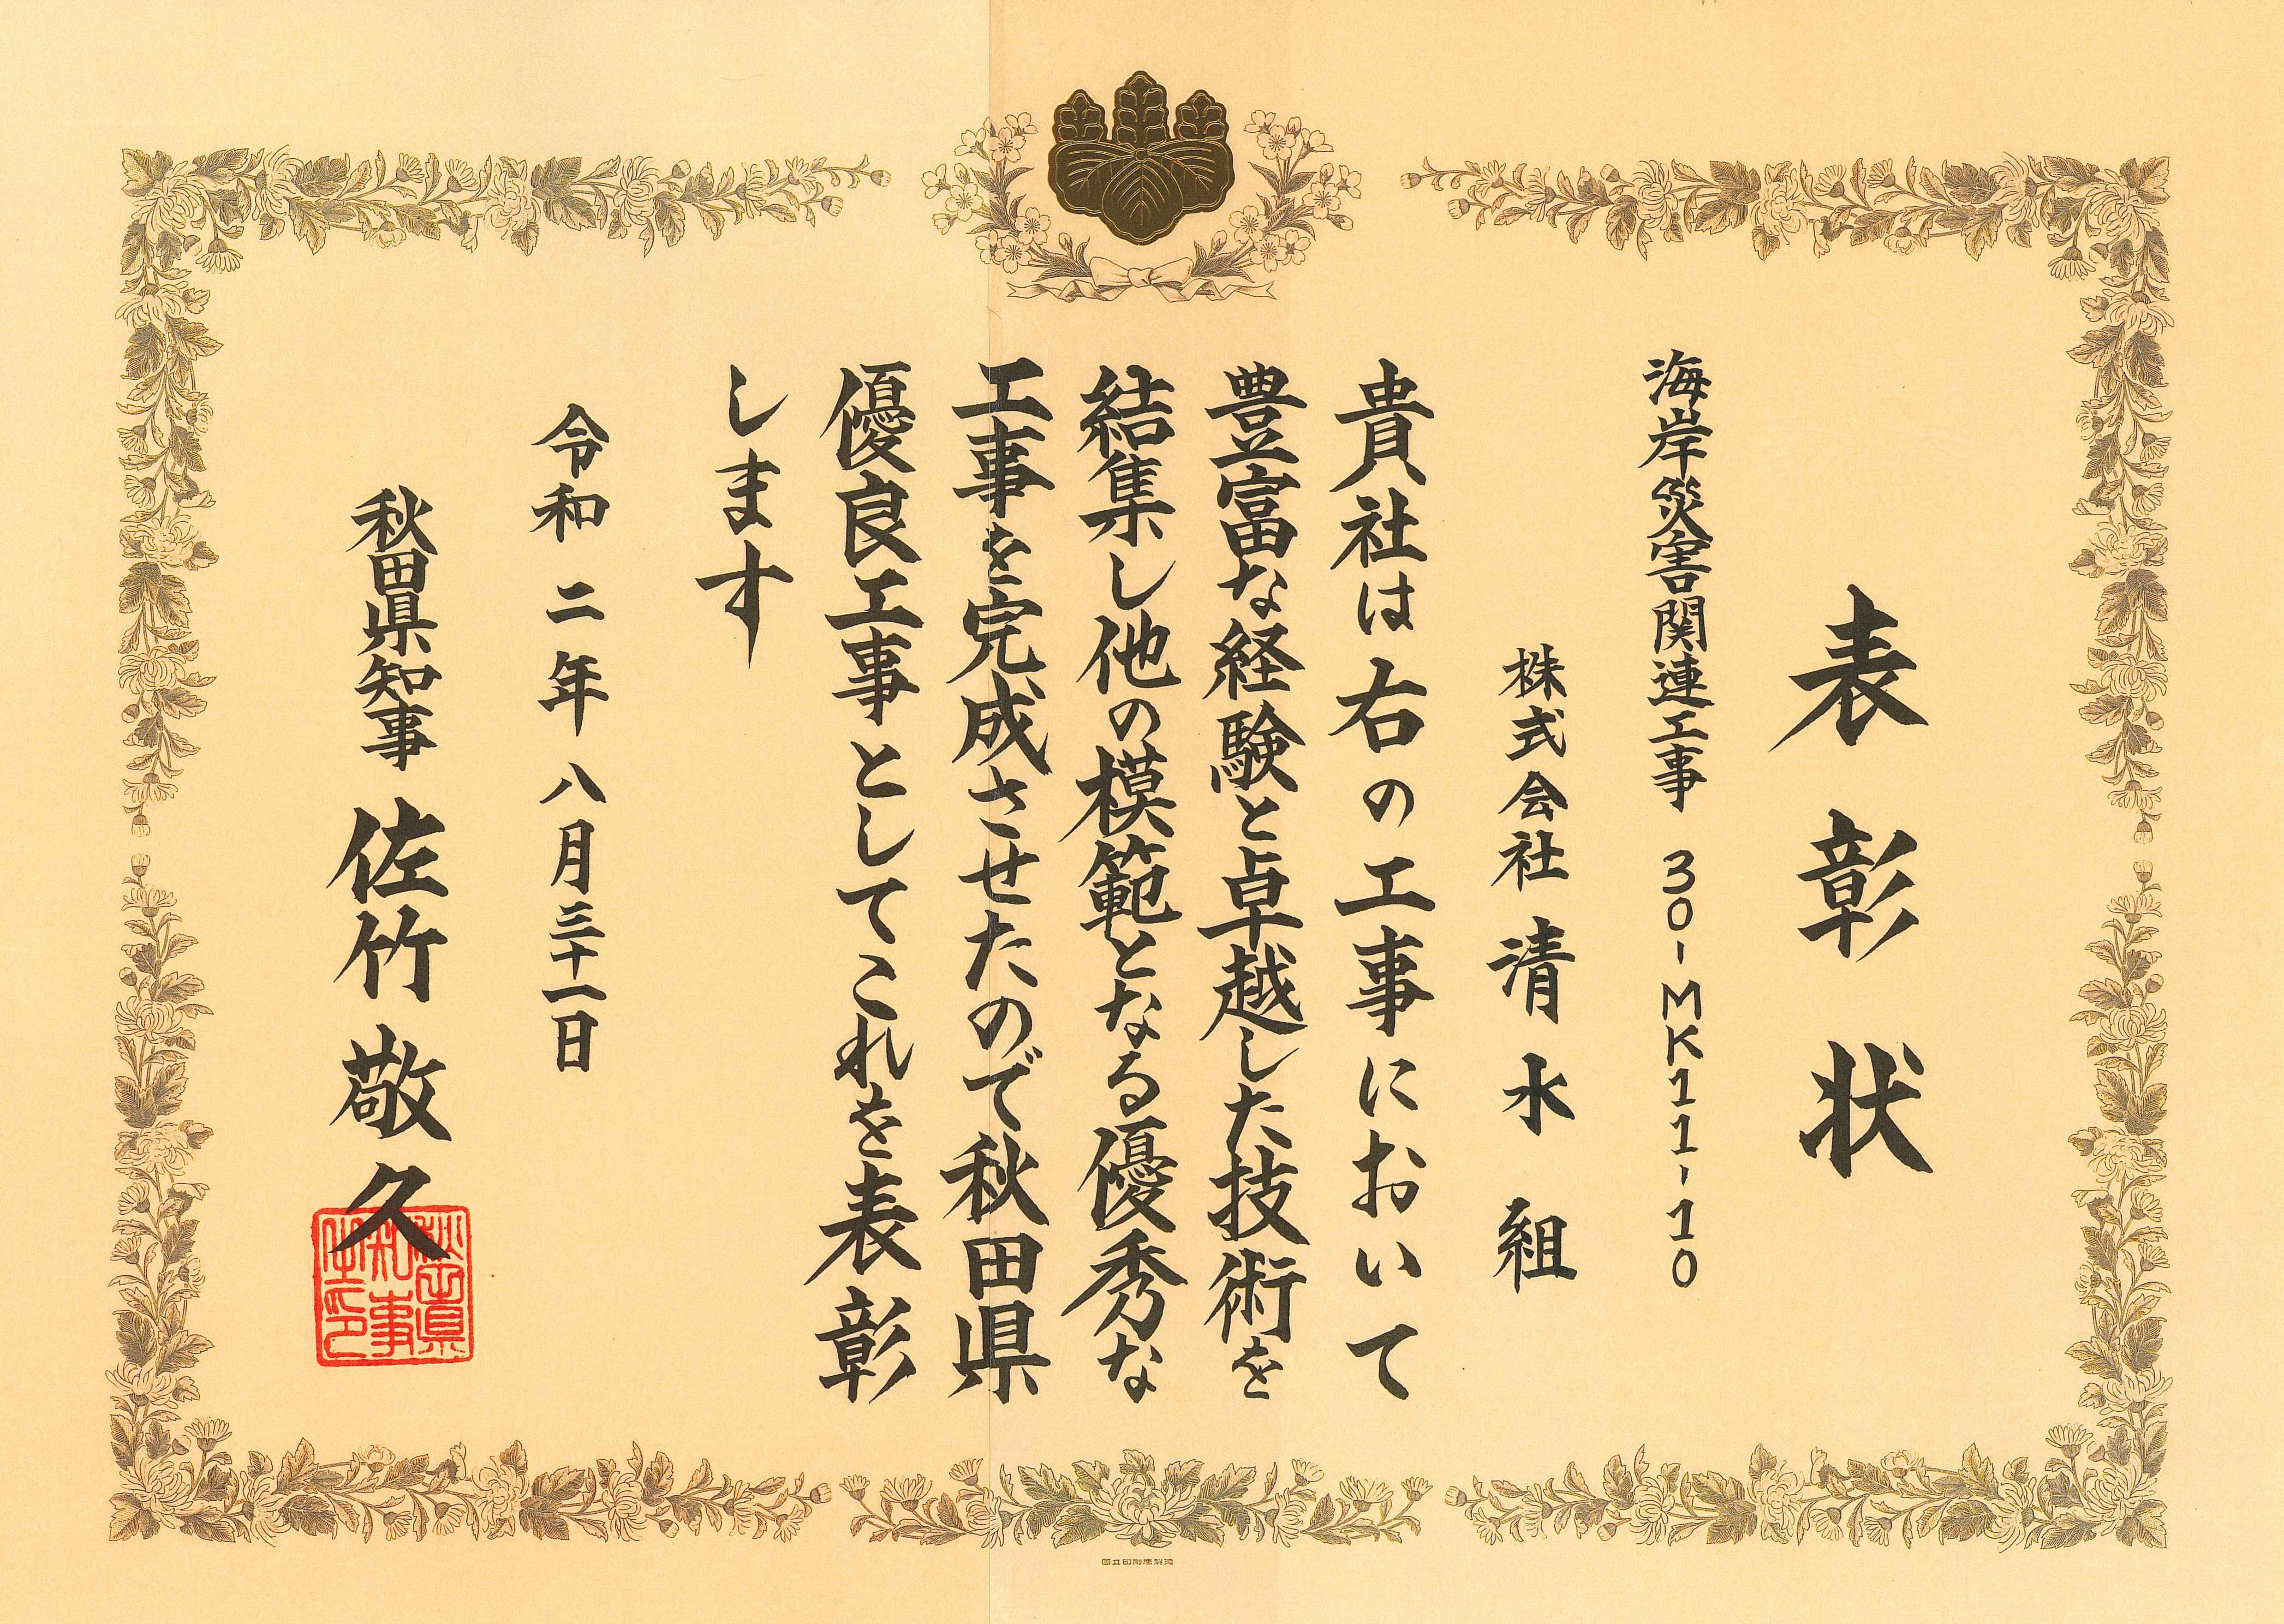 表彰状
海岸災害関連工事 30-MK11-10
株式会社 清水組
貴社は右の工事において
豊富な経験と卓越した技術を
結集し他の模範となる優秀な
工事を完成させたので秋田県
優良工事としてこれを表彰
します
令和二年八月三十一日
秋田県知事 佐竹敬久
国立印刷局製造